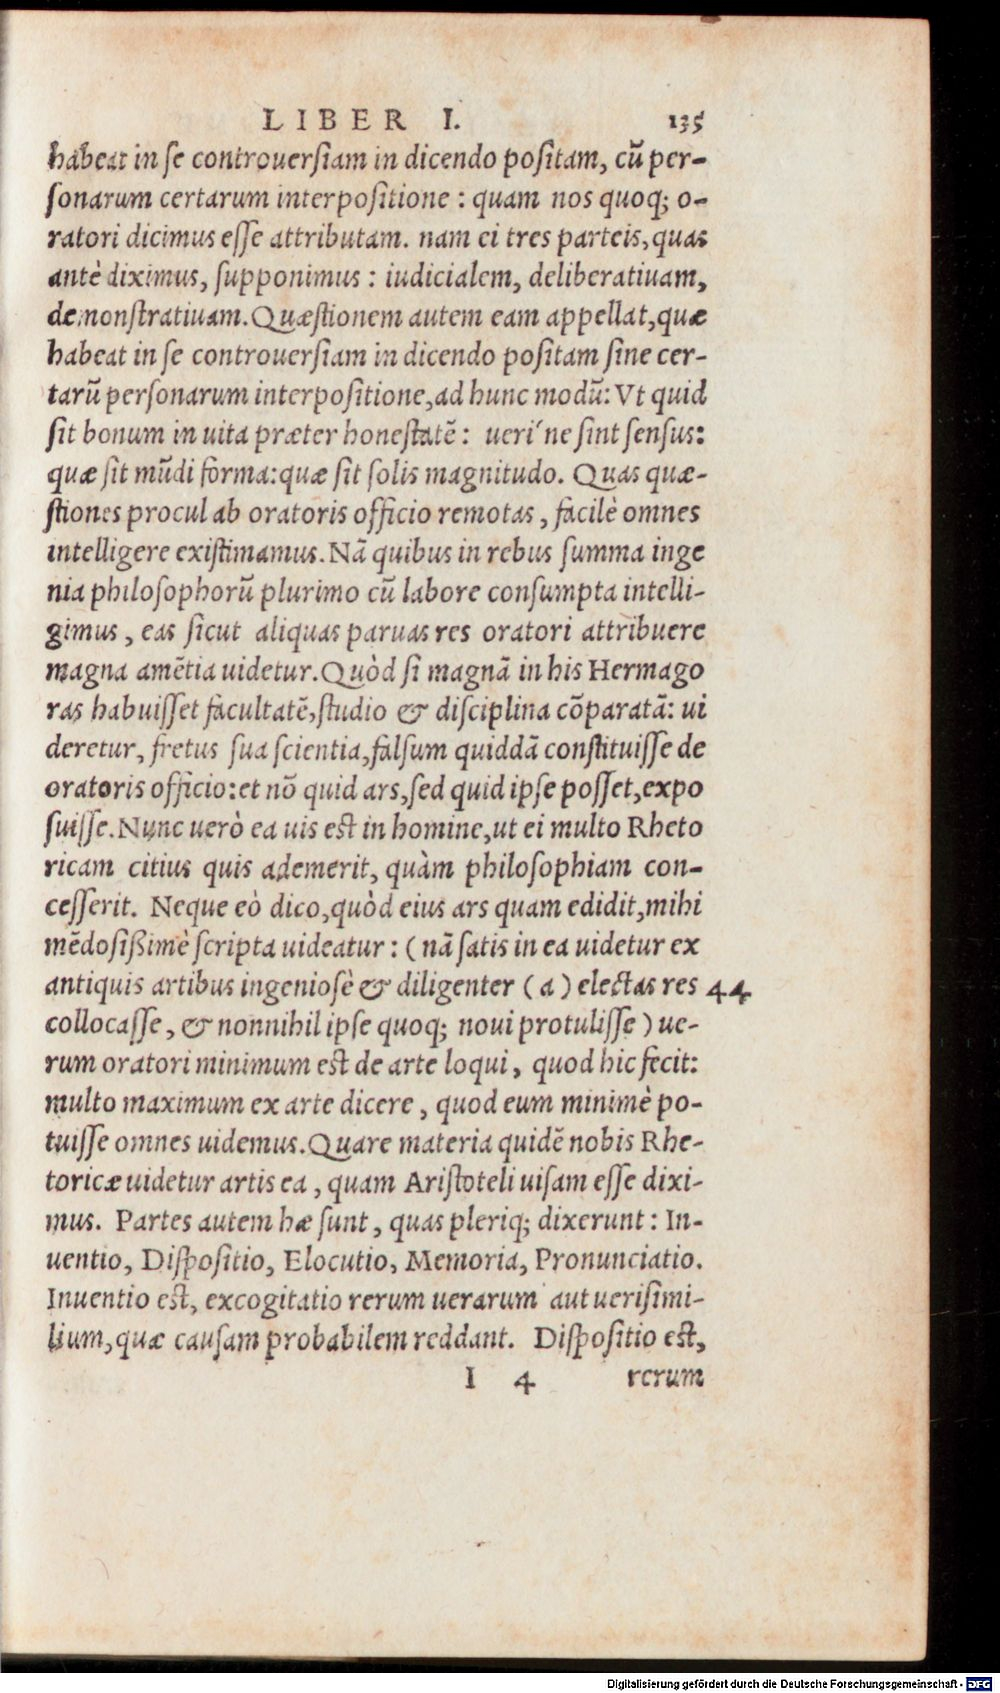 LIBER I. 135
habeat in se controuersiam in dicendo positam, cũ per-
sonarum certarum interpositione : quam nos quoq; o-
ratori dicimus esse attributam. nam ei tres parteis, quas
antè diximus, supponimus : iudicialem, deliberatiuam,
demonstratiuam. Quæstionem autem eam appellat, quæ
habeat in se controuersiam in dicendo positam sine cer-
tarũ personarum interpositione, ad hunc modũ: Vt quid
sit bonum in uita præter honestatẽ : ueri´ne sint sensus:
quæ sit mũdi forma: quæ sit solis magnitudo. Quas quæ-
stiones procul ab oratoris officio remotas, facilè omnes
intelligere existimamus. Nã quibus in rebus summa inge
nia philosophorũ plurimo cũ labore consumpta intelli-
gimus, eas sicut aliquas paruas res oratori attribuere
magna amẽtia uidetur. Quòd si magnã in his Hermago
ras habuisset facultatẽ, studio & disciplina cõparatã: ui
deretur, fretus sua scientia, falsum quiddã constituisse de
oratoris officio: et nõ quid ars, sed quid ipse posset, expo
suisse. Nunc uerò ea uis est in homine, ut ei multo Rheto
ricam citius quis ademerit, quàm philosophiam con-
cesserit. Neque eò dico, quòd eius ars quam edidit, mihi
mẽdosißimè scripta uideatur : ( nã satis in ea uidetur ex
antiquis artibus ingeniosè & diligenter ( a ) electas res 44
collocasse, & nonnihil ipse quoq; noui protulisse ) ue-
rum oratori minimum est de arte loqui, quod hic fecit:
multo maximum ex arte dicere, quod eum minimè po-
tuisse omnes uidemus. Quare materia quidẽ nobis Rhe-
toricæ uidetur artis ea, quam Aristoteli uisam esse dixi-
mus. Partes autem hæ sunt, quas pleriq; dixerunt : In-
uentio, Dispositio, Elocutio, Memoria, Pronunciatio.
Inuentio est, excogitatio rerum uerarum aut uerisimi-
lium, quæ causam probabilem reddant. Dispositio est,
I 4 rerum
Digitalisierung gefördert durch die Deutsche Forschungsgemeinschaft - DFG